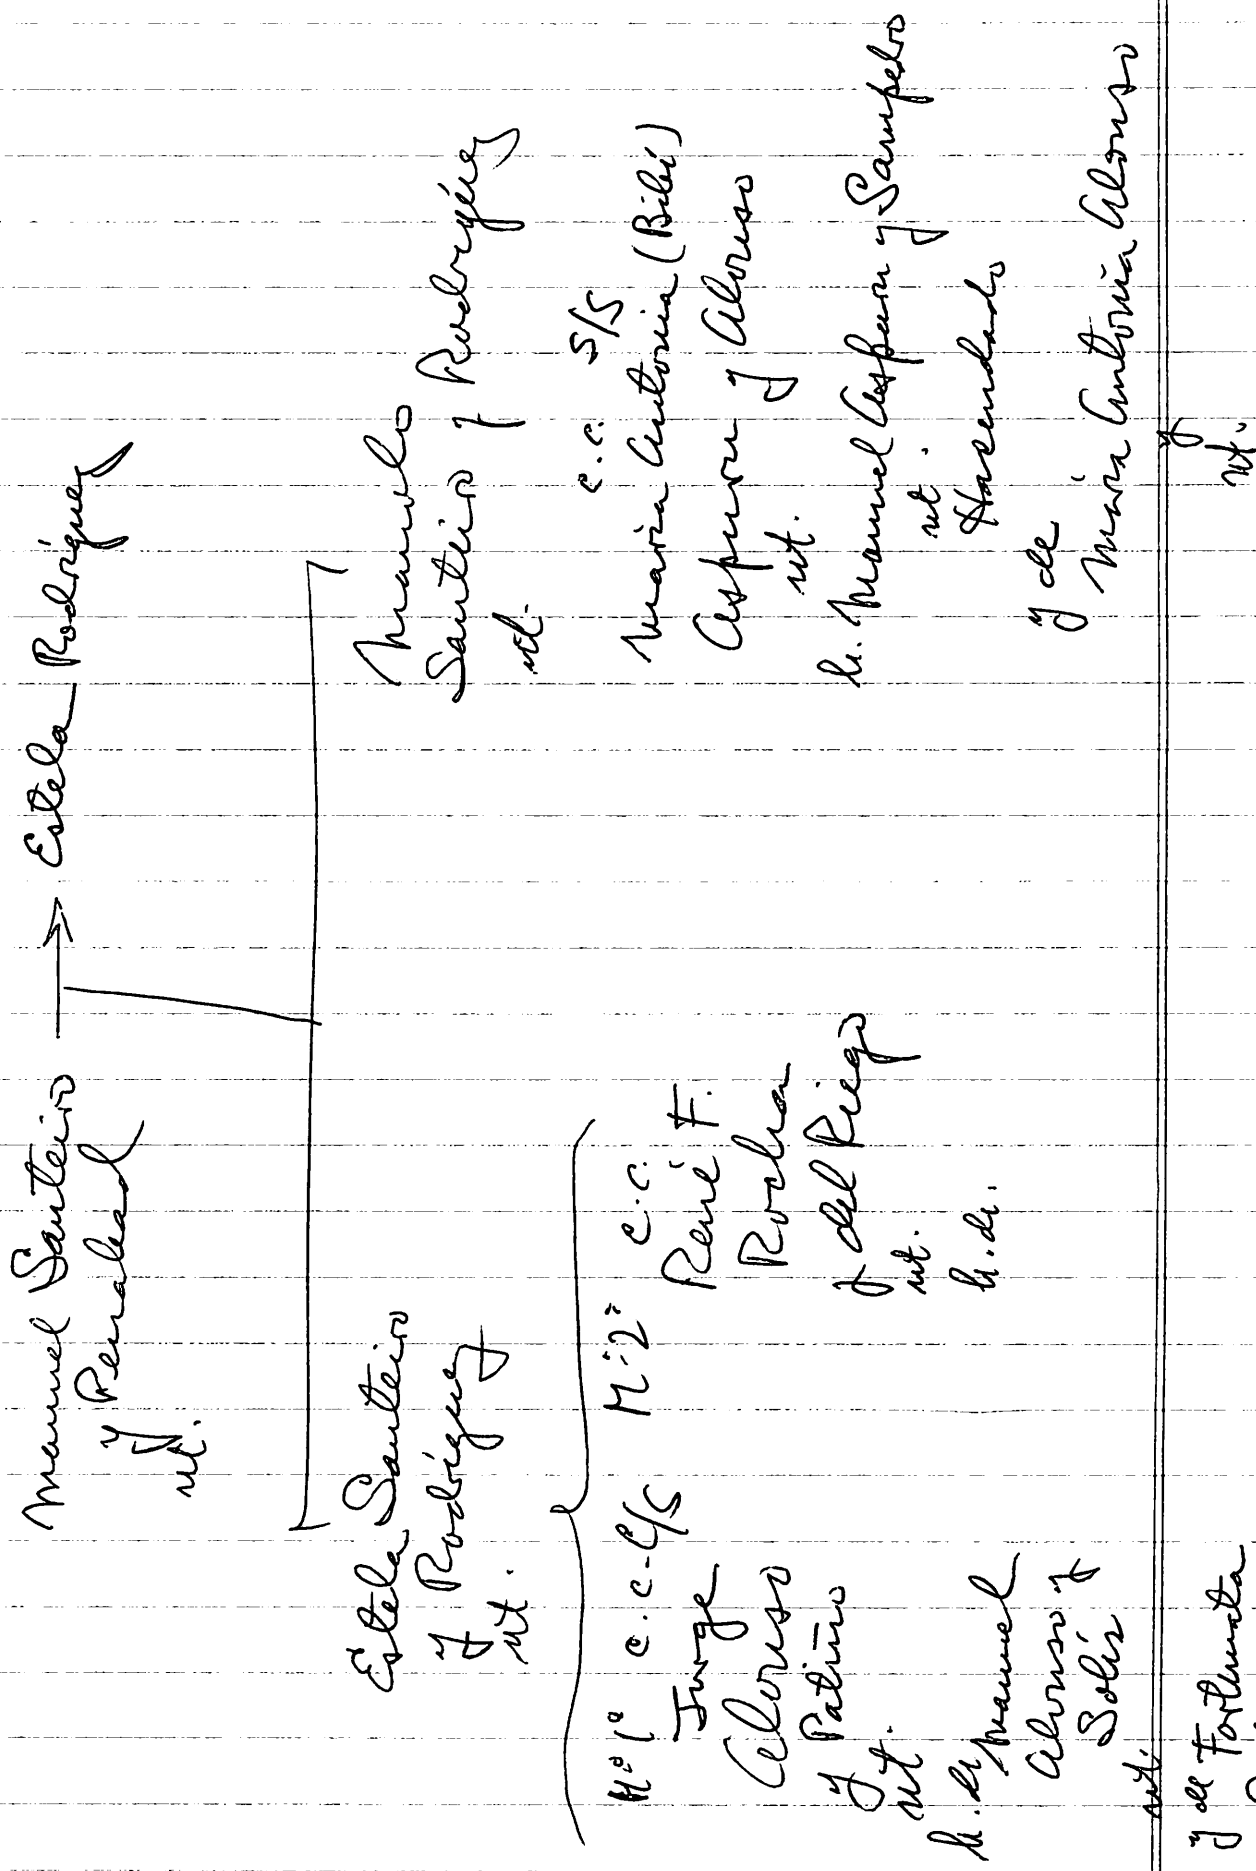 Manuel Santeiro → Estela Rodríguez
y Penabad
nt.
Estela Santeiro
y Rodríguez
nt.
Mº 1º c.c. C/S
Jorge
Alonso
y Patiño
nt.
h. de Manuel
Alonso y
Solís
nt.
y de Fortunata
Mº 2º c.c.
René F.
Rocha
y del Riego
nt.
h. de.
Manolo
Santeiro y Rodríguez
nt.
c.c. S/S
María Antonia (Bibí)
Aspuru y Alonso
nt.
h. Manuel Aspuru y Sampedro
nt.
Hacendado
y de
María Antonia Alonso
y
nt.